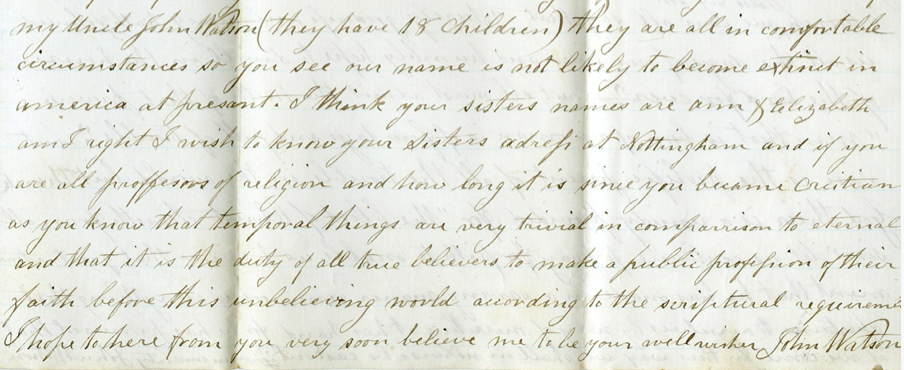 my Uncle John Watson (they have 18 children) they are all in comfortable
circumstances so you see our name is not likely to become extinct in
america at presant. I think your sisters names are ann & Eelizabeth
am I right I wish to know your Sisters adress at Nottingham and if you
are all proffesors of religion and how long it is since you became Cristian
as you know that temporal things are very trivial in comparrison to eternal
and that it is the duty of all true believers to make a public profession of their
faith before this unbelieving world acording to the scriptural requirem
I hope to here from you very soon believe me to be your well wisher John Watson